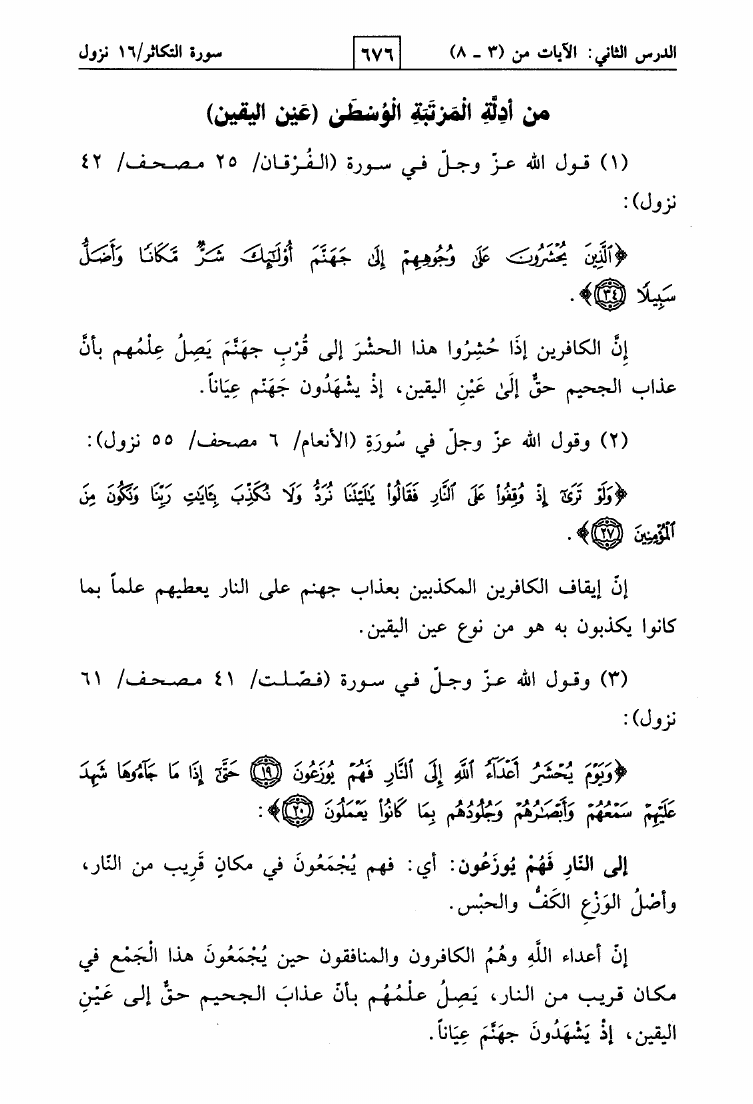 الدرس الثاني: الآيات من (٣ - ٨) ٦٧٦ سورة التكاثر/١٦ نزول
من أدِلَّةِ الْمَرْتَبَةِ الْوُسْطَىٰ (عَيْن اليقين)
(١) قول الله عزّ وجلّ في سورة (الفُرْقان/ ٢٥ مصحف/ ٤٢
نزول):
﴿ٱلَّذِينَ يُحْشَرُونَ عَلَىٰ وُجُوهِهِمْ إِلَىٰ جَهَنَّمَ أُوْلَٰٓئِكَ شَرٌّ مَّكَانًا وَأَضَلُّ
سَبِيلًا ﴿٣٤﴾﴾.
إِنَّ الكافرين إذَا حُشِرُوا هذا الحشْرَ إلى قُرْبِ جهنَّمَ يَصِلُ عِلْمُهم بأنَّ
عذاب الجحيم حقٌّ إلَىٰ عَيْنِ اليقين، إذْ يشْهَدُون جَهَنّم عِيَاناً.
(٢) وقول الله عزّ وجلّ في سُورَةِ (الأنعام/ ٦ مصحف/ ٥٥ نزول):
﴿وَلَوْ تَرَىٰٓ إِذْ وُقِفُوا۟ عَلَى ٱلنَّارِ فَقَالُوا۟ يَٰلَيْتَنَا نُرَدُّ وَلَا نُكَذِّبَ بِـَٔايَٰتِ رَبِّنَا وَنَكُونَ مِنَ
ٱلْمُؤْمِنِينَ ﴿٢٧﴾﴾.
إنّ إيقاف الكافرين المكذبين بعذاب جهنم على النار يعطيهم علماً بما
كانوا يكذبون به هو من نوع عين اليقين.
(٣) وقول الله عزّ وجلّ في سورة (فصّلت/ ٤١ مصحف/ ٦١
نزول):
﴿وَيَوْمَ يُحْشَرُ أَعْدَآءُ ٱللَّهِ إِلَى ٱلنَّارِ فَهُمْ يُوزَعُونَ ﴿١٩﴾ حَتَّىٰٓ إِذَا مَا جَآءُوهَا شَهِدَ
عَلَيْهِمْ سَمْعُهُمْ وَأَبْصَٰرُهُمْ وَجُلُودُهُم بِمَا كَانُوا۟ يَعْمَلُونَ ﴿٢٠﴾﴾:
إلى النَّارِ فَهُمْ يُوزَعُون: أي: فهم يُجْمَعُونَ في مكانٍ قَرِيب من النّار،
وأصْلُ الوَزْعِ الكَفُّ والحبْس.
إنّ أعداء اللَّهِ وهُمُ الكافرون والمنافقون حين يُجْمَعُونَ هذا الْجَمْع في
مكان قريب من النار، يَصِلُ علْمُهُم بأنّ عذابَ الجحيم حقٌّ إلى عَيْنِ
اليقين، إذْ يَشْهَدُونَ جهنَّمَ عِيَاناً.